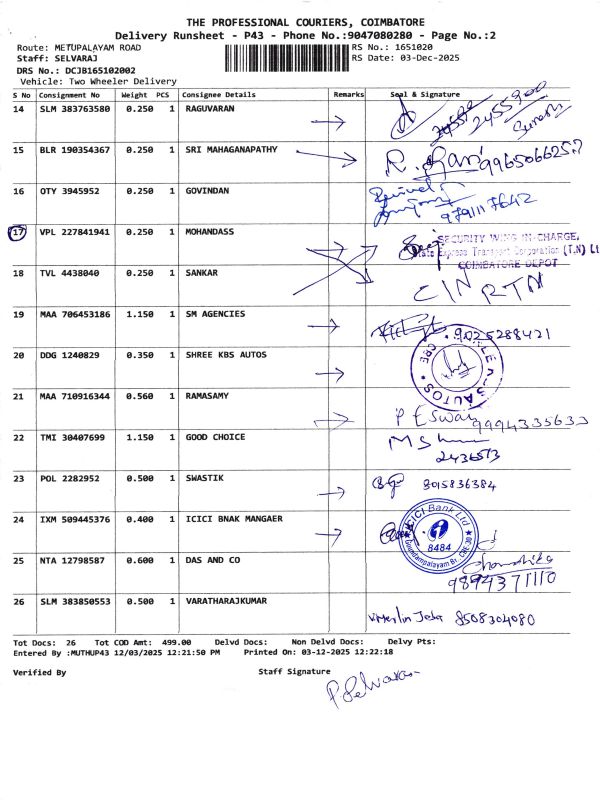 THE PROFESSIONAL COURIERS, COIMBATORE
Delivery Runsheet - P43 - Phone No.:9047080280 - Page No.:2
Route: METUPALAYAM ROAD RS No.: 1651020
Staff: SELVARAJ RS Date: 03-Dec-2025
DRS No.: DCJB165102002
Vehicle: Two Wheeler Delivery
S No Consignment No Weight PCS Consignee Details Remarks Seal & Signature
14 SLM 383763580 0.250 1 RAGUVARAN 2455900
Suresh
15 BLR 190354367 0.250 1 SRI MAHAGANAPATHY
16 OTY 3945952 0.250 1 GOVINDAN
9791117642
17 VPL 227841941 0.250 1 MOHANDASS
SECURITY WING IN-CHARGE,
State Express Transport Corporation (T.N) Lt
COIMBATORE DEPOT
18 TVL 4438040 0.250 1 SANKAR
RTN
19 MAA 706453186 1.150 1 SM AGENCIES
9025288421
20 DDG 1240829 0.350 1 SHREE KBS AUTOS
AUTOS
CBE
21 MAA 710916344 0.560 1 RAMASAMY
P ESwar 9994335633
22 TMI 30407699 1.150 1 GOOD CHOICE
23 POL 2282952 0.500 1 SWASTIK 8015836384
24 IXM 509445376 0.400 1 ICICI BNAK MANGAER
ICICI Bank Ltd
8484
Goundampalayam Br., CBE-30
25 NTA 12798587 0.600 1 DAS AND CO
9894371110
26 SLM 383850553 0.500 1 VARATHARAJKUMAR
Merlin Jeba 8508304080
Tot Docs: 26 Tot COD Amt: 499.00 Delvd Docs: Non Delvd Docs: Delvy Pts:
Entered By :MUTHUP43 12/03/2025 12:21:50 PM Printed On: 03-12-2025 12:22:18
Verified By Staff Signature
P Selvaraj